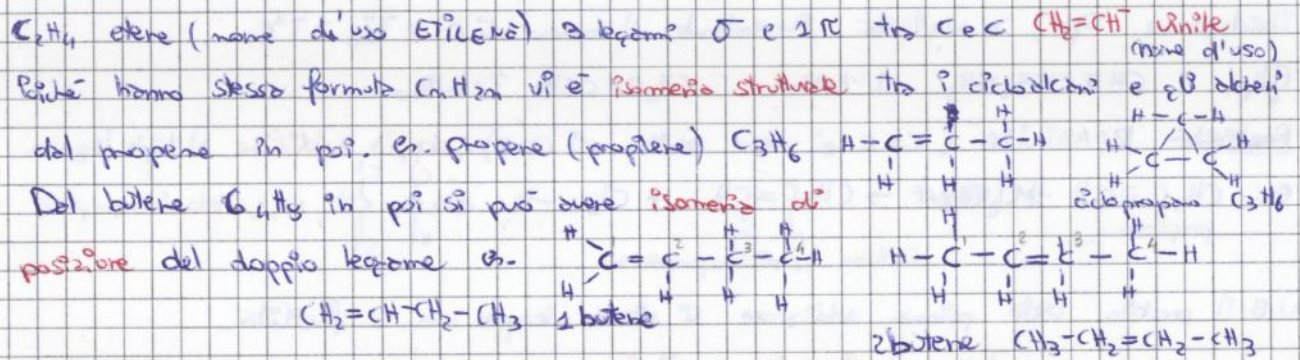 C2H4 etene (nome d'uso ETILENE) 3 legami σ e 1π tra C e C CH2=CH- vinile
(nome d'uso)
Poiché hanno stessa formula CnH2n vi è isomeria strutturale tra i cicloalcani e gli alcheni
dal propene in poi. es. propene (propilene) C3H6 H-C=C-C-H
ciclopropano C3H6
Dal butene C4H8 in poi si può avere isomeria di
posizione del doppio legame es. C=C-C-C-H H-C-C=C-C-H
CH2=CH-CH2-CH3 1 butene
2 butene CH3-CH2=CH2-CH3